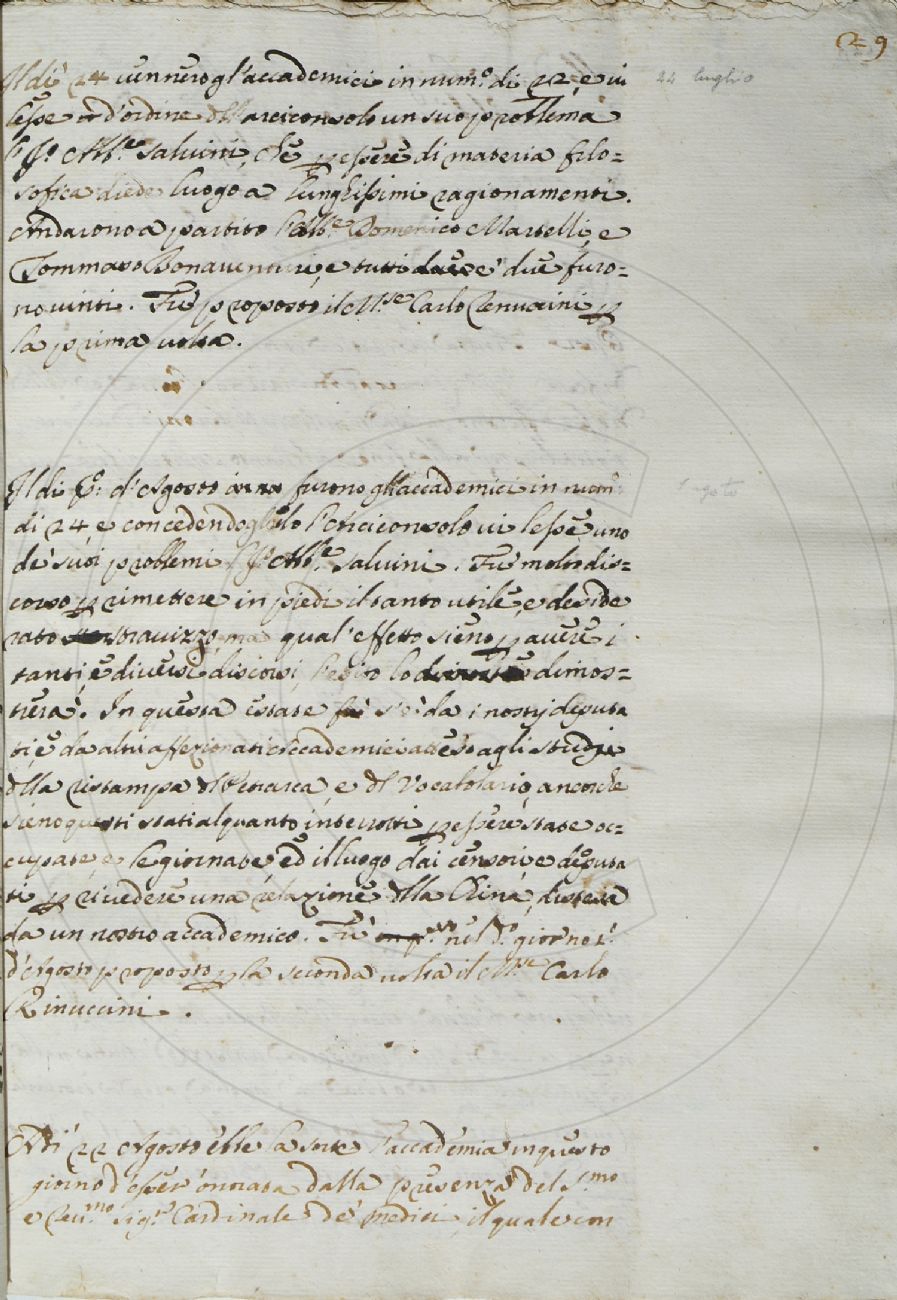 29
Il dì 24 uennero gl'accademici in num.º di 22, e ui 24 luglio
lesse d'ordine dll arciconsolo un suo problema
l' Ab.te Saluini, che p essere di materia filo=
sofica diede luogo a lunghissimi ragionamenti.
Andarono a partito l'Ab.e Domenico Martelli, e
Tommaso Bonauenturi, e tutti e due furo=
no uinti. Fù proposto il M.se Carlo Renuccini p
la prima uolta.
Il di P.º d'Agosto furono gli accademici in num.º agosto
di 24 e concedendoglielo l'Arciconsolo ui lesse uno
de suoi problemi l' Ab.e Saluini. Fù molto dis=
corso p rimettere in piedi il tanto utile, e deside
rato strauizzo, ma qual' effetto sieno p auere i
tanti, e diuersi discorsi, l'esito lo dimos=
trerà. In questa estate s'è da i nostrj deputa
ti, e da altri affezionati Accademici atteso agli studj
dlla ristampa dl Petrarca, e dl Vocabolario, ancorche
sieno questi stati alquanto interrotti p essere state oc=
cupate, e le giornate, ed il luogo dai censori, e deputa
ti p riuedere una relazione dlla China, distesa
da un nostro accademico. Fù nel d.º giorno P.º
d'Agosto proposto p la seconda uolta il M.se Carlo
Rinuccini.
Adì 22 Agosto ebbe la sorte l'accademia in questo
giorno d'esser' onorata dalla presenza del S.mo
e Reu.mo Sig.r Cardinale de' Medici, il quale con